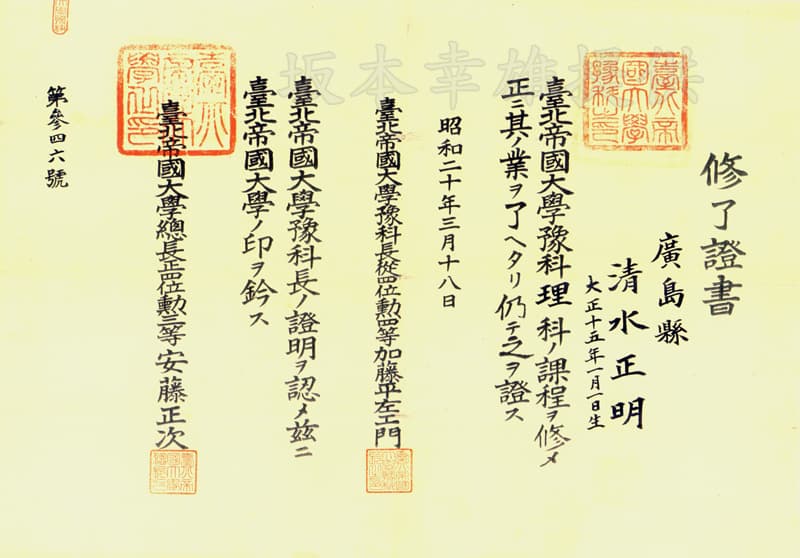 修了證書
廣島縣
清水正明
大正十五年一月一日生
臺北帝國大學豫科理科ノ課程ヲ修メ
正ニ其ノ業ヲ了ヘタリ仍テ之ヲ證ス
昭和二十年三月十八日
臺北帝國大學豫科長從四位勲四等加藤平左エ門
臺北帝國大學豫科長ノ證明ヲ認メ玆ニ
臺北帝國大學ノ印ヲ鈐ス
臺北帝國大學總長正四位勲三等安藤正次
第參四六號
臺北帝
國大學
豫科印
坂本幸雄提供